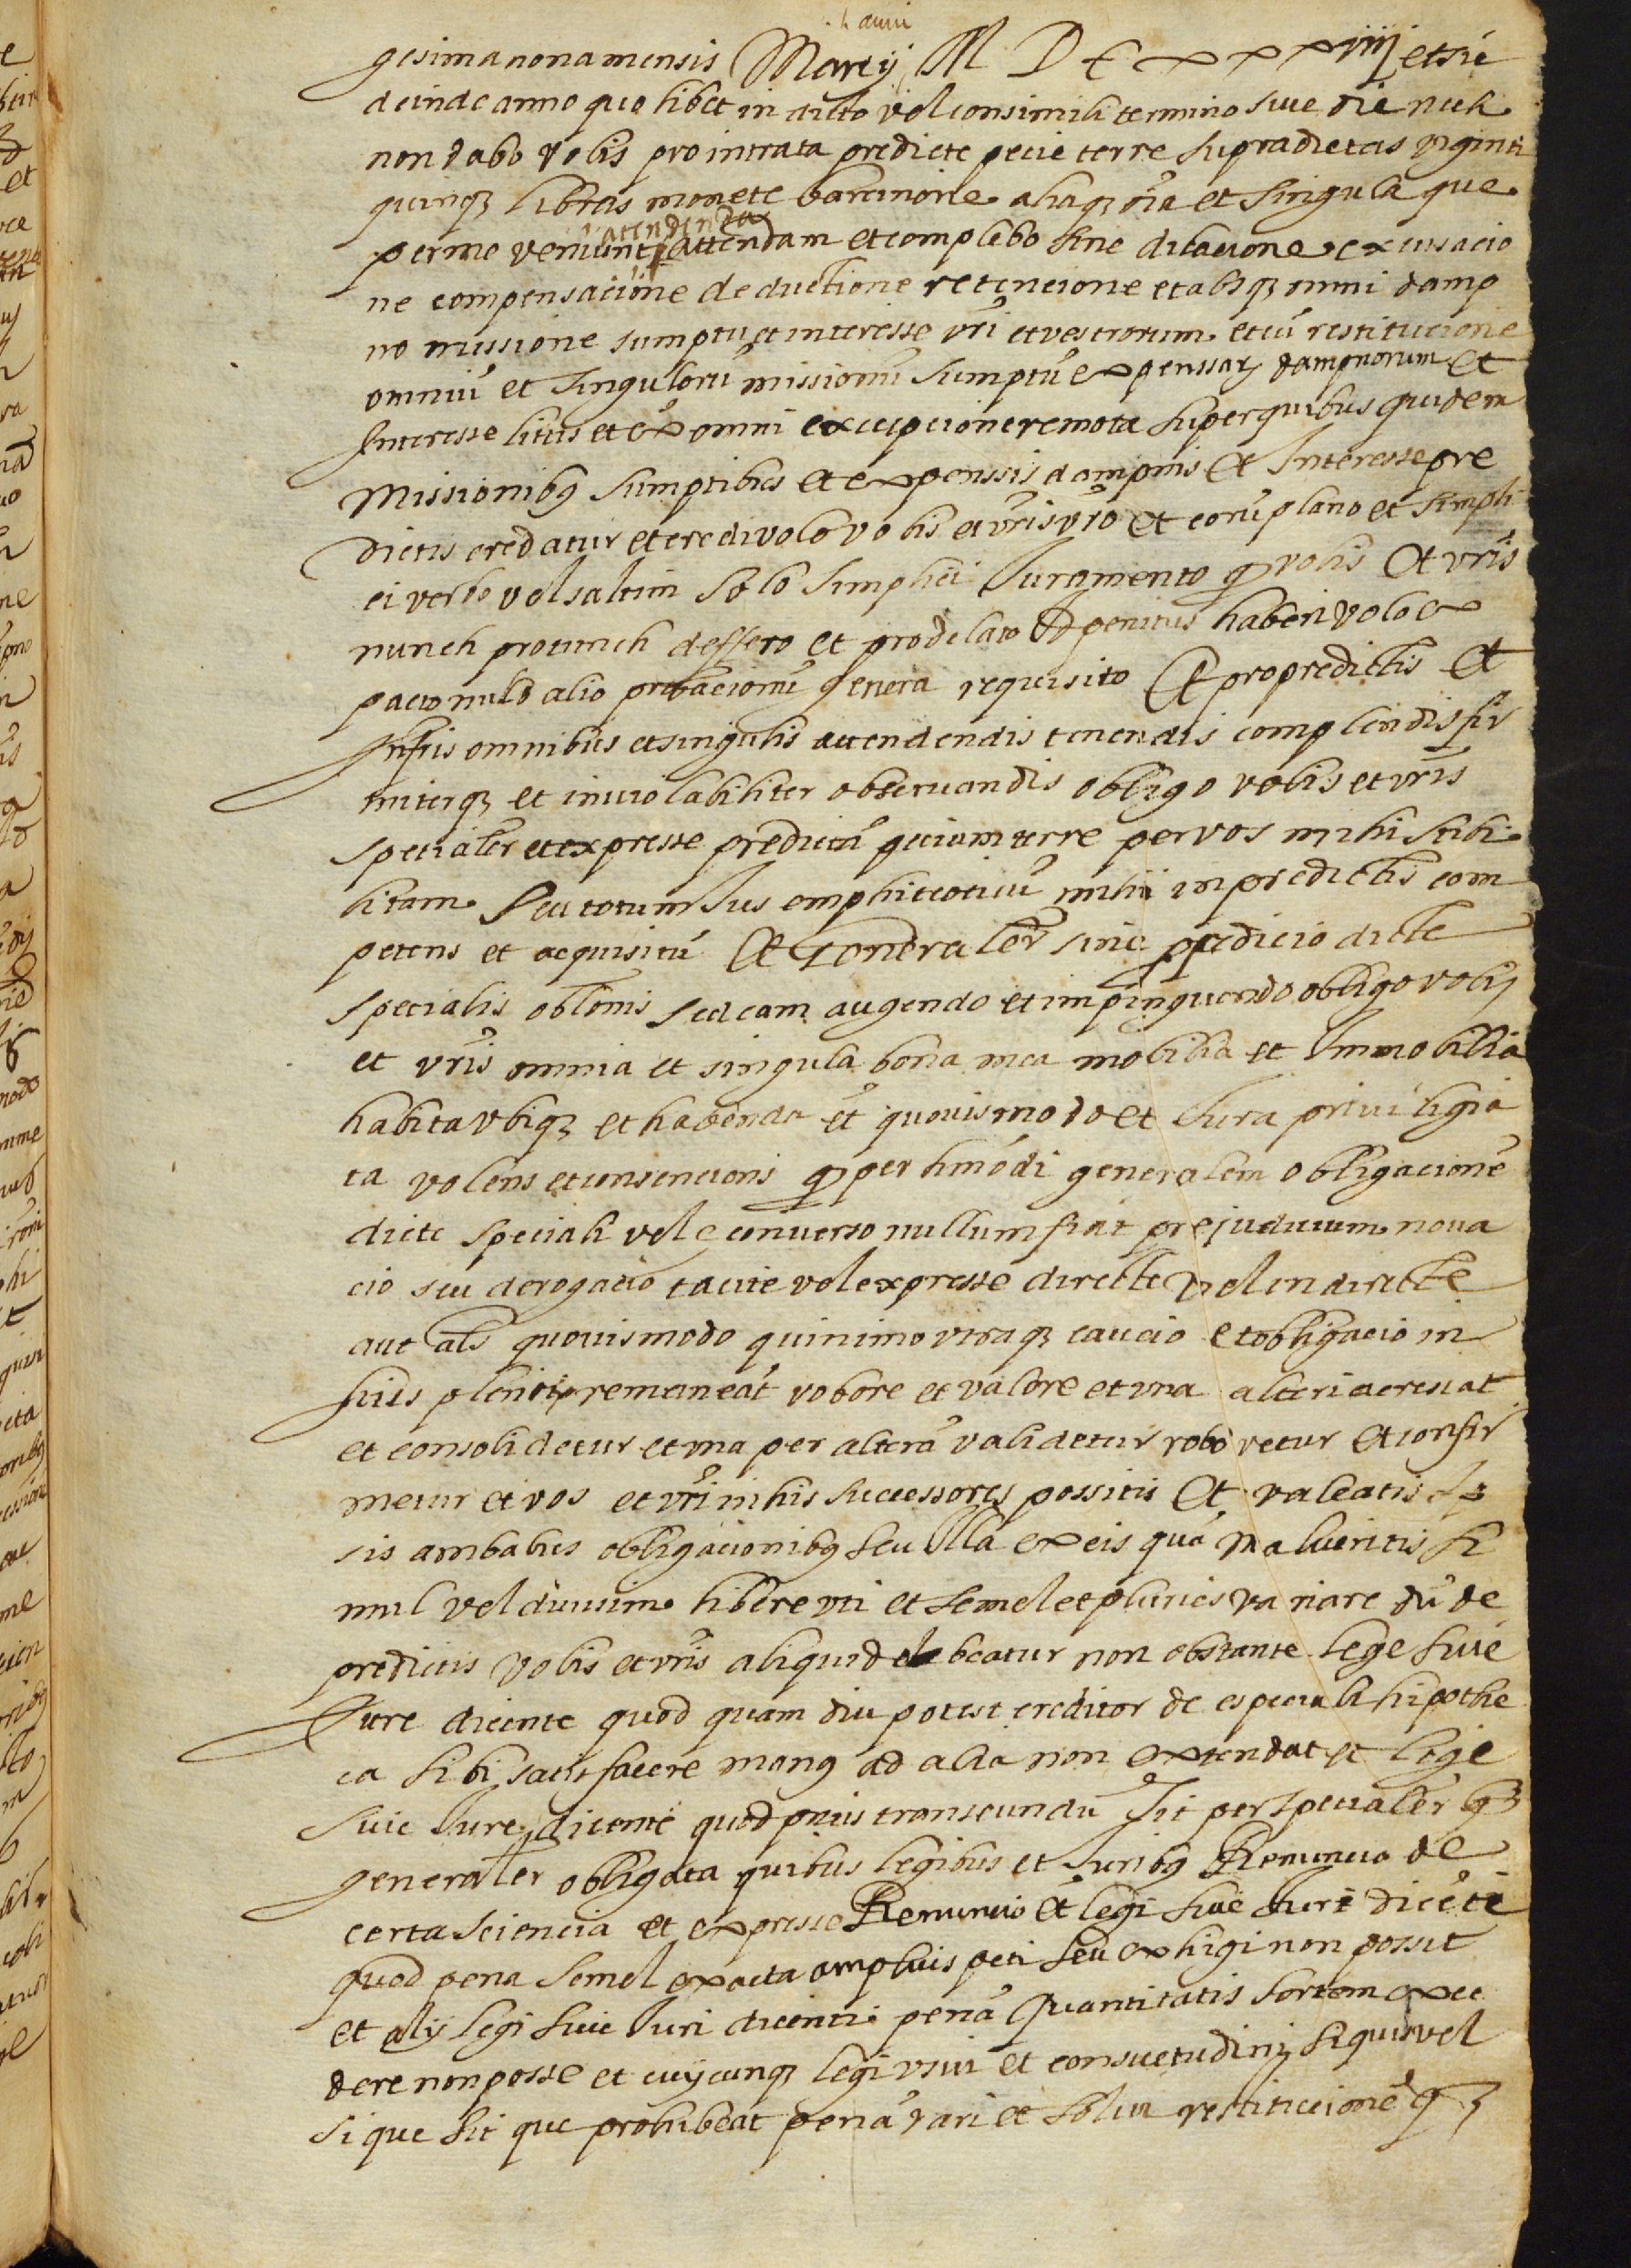 anni
gesima nona mensis Marcij M D L x x x viiij et sic
deinde anno quolibet in dicto vel consimili termino sive die nech
non dabo vobis pro intrata predicte pecie terre supradictas viginti
quinqz libras monete barcinone aliaqz oia et singula que
attendenda
per me veniunt attendam et complebo sine dilacione excusacio
ne compensacione deductione retencione et absqz omni damp
no missione sumptu et interesse vri et vestrorum et cu restitucione
omniu et singuloru missionu sumptu expenssarz dampnorum et
Interesse litis et ex omni excepcione remota super quibus quidem
Missionibz sumptibus et expenssis dampnis et Interesse pre
dictis credatur et credi volo vobis et vris vro et eoru plano et simpli
ci verbo vel saltim solo simplici Juramento q vobis et vris
nunch pro tunch deffero et pro delato Id penitus haberi volo ex
pacto nullo alio probacionu genera requisito Et pro predictis et
Infris omnibus et singulis attendendis tenendis complendis fir
miterqz et inviolabiliter observandis obligo vobis et vris
specialer et expresse predicta peciam terre per vos mihi stibi
litam Seu totum Jus emphiteoticu mihi in predictis com
petens et acquisitu Et Generaler sine predicio dicte
specialis oblonis sed eam augendo et impinguendo obligo vobis
et vris omnia et singula bona mea mobilia et Immobilia
habita ubiqz et habenda et quovismodo et Jura priviligia
ta volens et consenciens q per hmodi generalem obligacione
dicte speciali vel e converso nullum fiat prejudicium nova
cio seu derogacio tacite vel expresse directe vel indirecte
aut als quovismodo quinimo utraqz caucio et obligacio in
suis plenit remaneat robore et valore et una alteri acrescat
et consolidetur et una per altera validetur roboretur et confir
metur et vos et vri in his successores possitis Et valeatis Ip
sis ambabus obligacionibz seu Illa ex eis qua malueritis si
mul vel divisim libere uti et semel et pluries variare du de
predictis vobis et vris aliquid debeatur non obstante lege sive
Jure dicente quod quam diu potest creditor de especiali hipothe
ca sibi satisfacere manz ad alia non extendat et lege
sive Jure dicente quod prius transeundu sit per specialer qz
generaler obligata quibus legibus et Juribz Renuncio de
certa sciencia et expresse Renuncio et legi sive Juri dicete
quod pena semel exacta amplius peti seu exhigi non possit
et alij legi sive Juri dicenti pena quantitatis sortem exce
dere non posse et cuycunqz legi usui et consuetudinj si quis vel
si que sit que prohibeat pena dari et solvi restitucione qz